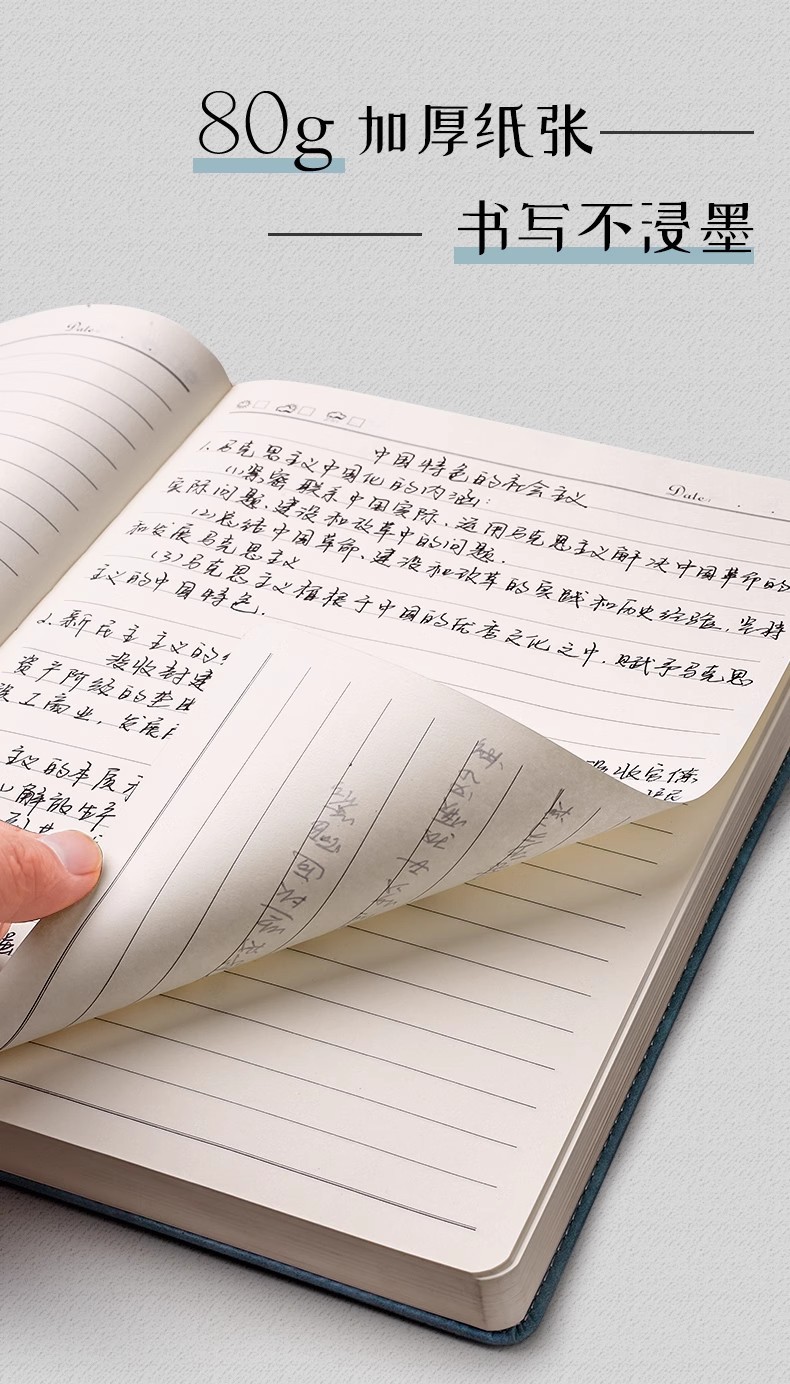 80g 加厚纸张
书写不浸墨
Date:
Date:
中国特色的社会主义
1.马克思主义中国化的内涵:
(1)紧密联系中国实际,运用马克思主义解决中国革命的
实际问题,建设和改革中的问题.
(2)总结中国革命、建设和改革的实践和历史经验,坚持
和发展马克思主义
(3)马克思主义植根于中国的优秀文化之中,赋予马克思
主义的中国特色.
2.新民主主义的
没收封建
资产阶级的垄
工商业,发展
收官僚
主义的本质
解放生